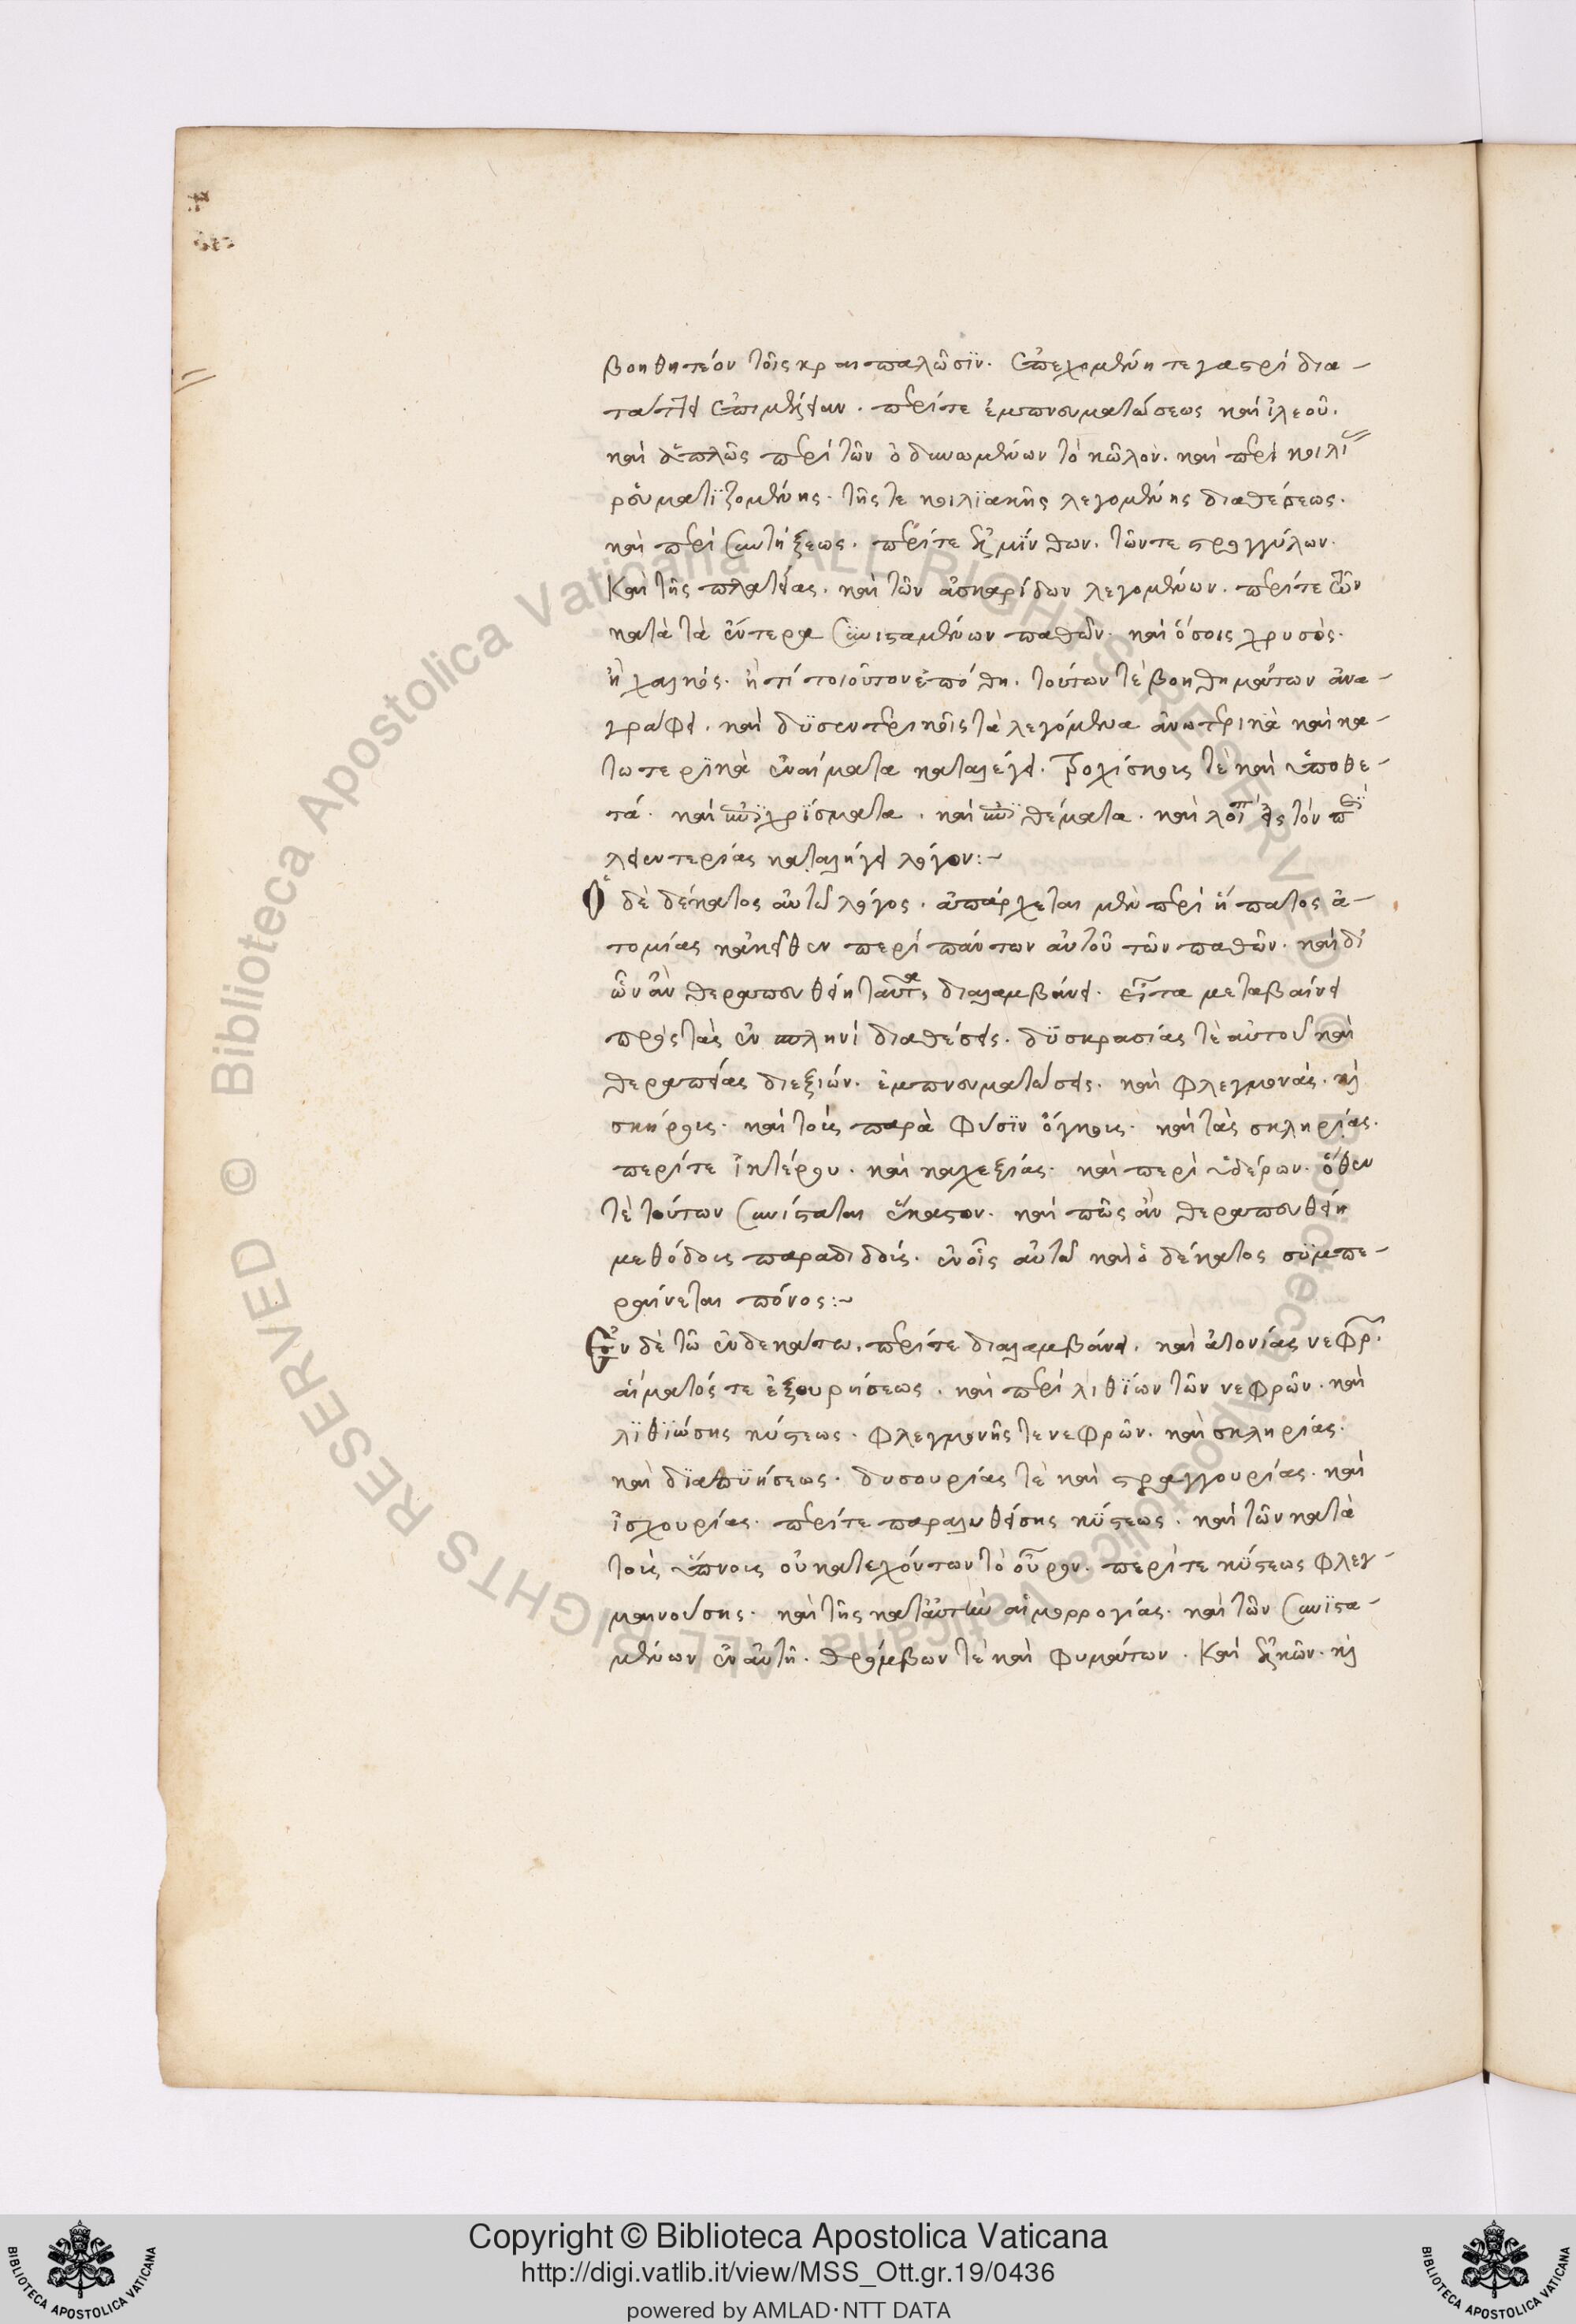 βοηθητέον τοῖς κραιπαλῶσϊν. ἐπεχομένη τε γαστρὶ δια-
περί τε ἐμπνευματώσεως καὶ ἰλεοῦ.
καὶ ἁπλῶς περὶ τῶν ὀδυνωμένων τὸ κῶλον. καὶ περὶ κοιλί
ῥευματϊζομένης. τῆς τε κοιλϊακῆς λεγομένης διαθέσεως.
καὶ περὶ συντήξεως. περί τε ἑλμίνθων. τῶν τε στρογγύλων.
Καὶ τῆς πλατείας. καὶ τῶν ἀσκαρίδων λεγομένων. περί τε τῶν
κατὰ τὰ ἔντερα συνισταμένων παθῶν. καὶ ὅσοις χρυσὸς.
ἢ χαλκός. ἢ τί τοιοῦτον ἐπόθη. τούτων τὲ βοηθημάτων ἀνα-
γράφει. καὶ δϋσεντερικοῖς τὰ λεγόμενα ἀνωτερικὰ καὶ κα-
τωτερϊκὰ ἐναίματα καταλέγει. τροχίσκους τὲ καὶ ὑποθε-
τά. καὶ ἐπϊχρΐσματα. καὶ ἐπϊθέματα. καὶ λοιπ εἰς τὸν περὶ
λειεντερίας καταλήγει λόγον:~
Ὁ δὲ δέκατος αὐτῶ λόγος. ἀπάρχεται μὲν περὶ ἥπατος ἀ-
τομίας κἀκεῖθεν περὶ πάντων αὐτοῦ τῶν παθῶν. καὶ δι
ὧν ἂν θεραπευθείη ταῦτα, διαλαμβάνει. εἶτα μεταβαίνει
πρὸς τὰς ἐν σπληνὶ διαθέσεις. δϋσκρασίας τὲ αὐτοῦ καὶ
θεραπείας διεξιών. ἐμπνευματώσεις. καὶ φλεγμονάς. κὶ
σκίρρους. καὶ τοὺς παρὰ φύσϊν ὄγκους. καὶ τὰς σκληρίας.
περί τε ἰκτέρου. καὶ καχεξίας. καὶ περὶ ὑδέρων. ὅθεν
τὲ τούτων συνίσταται ἕκαστον. καὶ πῶς ἂν θεραπευθείη
μεθόδους παραδιδοὺς. ἐν οἷς αὐτῶ καὶ ὁ δέκατος συμπε-
ραίνεται πόνος:~
Ἐν δὲ τῶ ἑνδεκάτω. περί τε διαλαμβάνει. καὶ ἀτονίας νεφρ.
αἵματός τε ἐξουρήσεως. καὶ περὶ λιθϊών τῶν νεφρῶν. καὶ
λϊθϊώσης κύστεως. φλεγμονῆς τε νεφρῶν. καὶ σκληρίας.
καὶ δϊαπϋήσεως. δυσουρίας τὲ καὶ στραγγουρίας. καὶ
ἰσχουρίας. περί τε παραλυθείσης κύστεως. καὶ τῶν κατὰ
τοὺς ὕπνους οὐ κατεχόντων τὸ οὖρον. περί τε κύστεως φλεγ-
μαινούσης. καὶ τῆς κατ᾽ αὐτὴν αἱμορρογίας. καὶ τῶν συνϊστα-
μένων ἐν αὐτῆ. θρόμβων τὲ καὶ φυμάτων. Καὶ ἑλκῶν. κὶ
Copyright © Biblioteca Apostolica Vaticana
http://digi.vatlib.it/view/MSS_Ott.gr.19/0436
powered by AMLAD·NTT DATA
BIBLIOTECA APOSTOLICA VATICANA
BIBLIOTECA APOSTOLICA VATICANA
© Biblioteca Apostolica Vaticana ALL RIGHTS RESERVED © Biblioteca Apostolica Vaticana ALL RIGHTS RESERVED